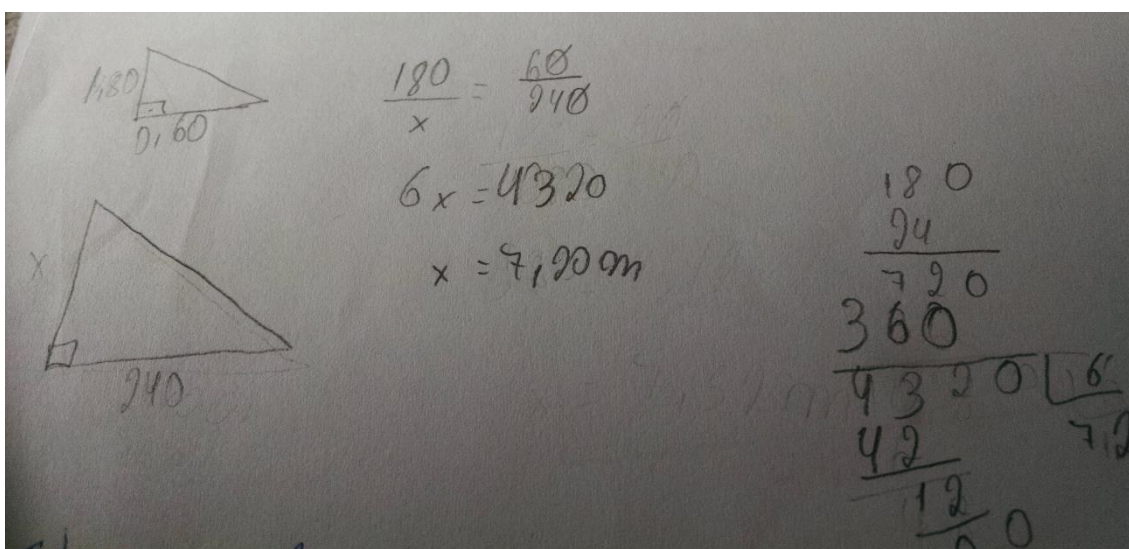 1,80
0,60
x
240
180/x = 60/240
6x = 4320
x = 7,20 m
180
24
720
360
4320 6
42 7,2
12
0 0